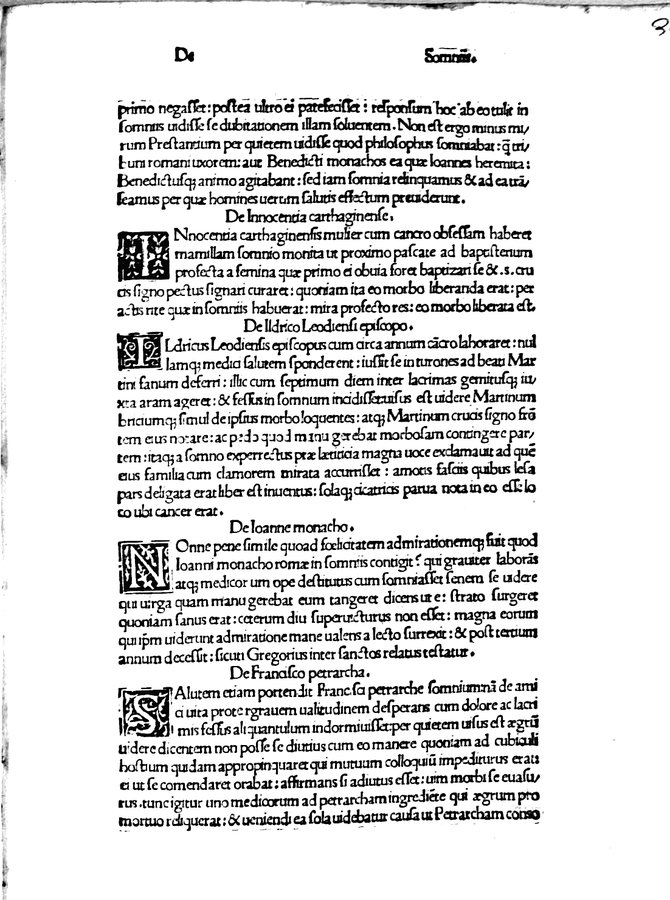 De Somniis.
primo negasset: postea ultro ei patefecisset: responsum hoc ab eo tulit in
somniis uidisse se dubitationem illam soluentem. Non est ergo minus mi/
rum Prestantium per quietem uidisse quod philosophus somniabat: q̄ tri/
buni romani uxorem: aut Benedicti monachos ea quæ Ioannes heremita:
Benedictusq; animo agitabant: sed iam somnia relinquamus & ad ea trā/
seamus per quæ homines uerum salutis effectum
De Innocentia carthaginense.
INnocentia carthaginensis mulier cum cancro obsessam haberet
mamillam somnio monita ut proximo pascate ad baptisterium
profecta a femina quæ primo ei obuia foret baptizari se & .s. cru
cis signo pectus signari curaret: quoniam ita eo morbo liberanda erat: per
actis rite quæ in somniis habuerat: mira profecto res: eo morbo liberata est.
De Ildrico Leodiensi episcopo.
ILdricus Leodiensis episcopus cum circa annum cācro laboraret: nul
lamq; medici salutem sponderent: iussit se in turones ad beati Mar
tini fanum deferri: illic cum septimum diem inter lacrimas gemitusq; iu/
xta aram ageret: & fessus in somnum incidisset uisus est uidere Martinum
briciumq; simul de ipsius morbo loquentes: atq; Martinum crucis signo frō
tem eius notare: ac pedo quod manu gerebat morbosam contingere par/
tem: itaq; a somno experrectus præ lætitia magna uoce exclamauit ad quē
eius familia cum clamorem mirata accurrisset: amotis fasciis quibus lesa
pars deligata erat liber est inuentus: solaq; cicatricis parua nota in eo esse: lo
co ubi cancer erat.
De Ioanne monacho.
NOnne pene simile quoad fœlicitatem admirationemq; fuit quod
Ioanni monacho romæ in somniis contigit? qui grauiter laborās
atq; medicorum ope destitutus cum somniasset senem se uidere
qui uirga quam manu gerebat eum tangeret dicens ut e: strato surgeret
quoniam sanus erat: ceterum diu superuicturus non esset: magna eorum
qui ip̄m uiderunt admiratione mane ualens a lecto surrexit: & post tertium
annum decessit: sicuti Gregorius inter sanctos relatus testatur.
De Francisco petrarcha.
SAlutem etiam portendit Francisci petrarche somnium nā de ami
ci uita propter grauem ualitudinem desperans cum dolore ac lacri
mis fessus aliquantulum indormiuisset: per quietem uisus est ægrū
uidere dicentem non posse se diutius cum eo manere quoniam ad cubiculi
hostium quidam appropinquaret qui mutuum colloquiū impediturus erat:
ei ut se comendaret orabat: affirmans si adiutus esset: uim morbi se euasu/
rus. tunc igitur uno medicorum ad petrarcham ingrediēte qui ægrum pro
mortuo reliquerat: & ueniendi ea sola uidebatur causa ut Petrarcham conso